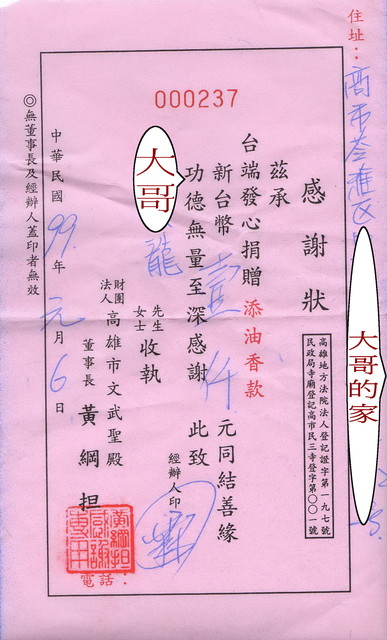 000237
住址：高市苓雅区
大哥的家
感謝狀
高雄地方法院法人登記證字第一九七號
民政局寺廟登記高市民三寺登字第〇〇一號
茲承
台端發心捐贈添油香款
新台幣壹仟元同結善緣
功德無量至深感謝 此致
經辦人印
大哥
龍 先生 女士 收執
財團法人高雄市文武聖殿
董事長 黃綱担
黃綱担感謝專用
電話：
中華民國99年元月6日
◎無董事長及經辦人蓋印者無效